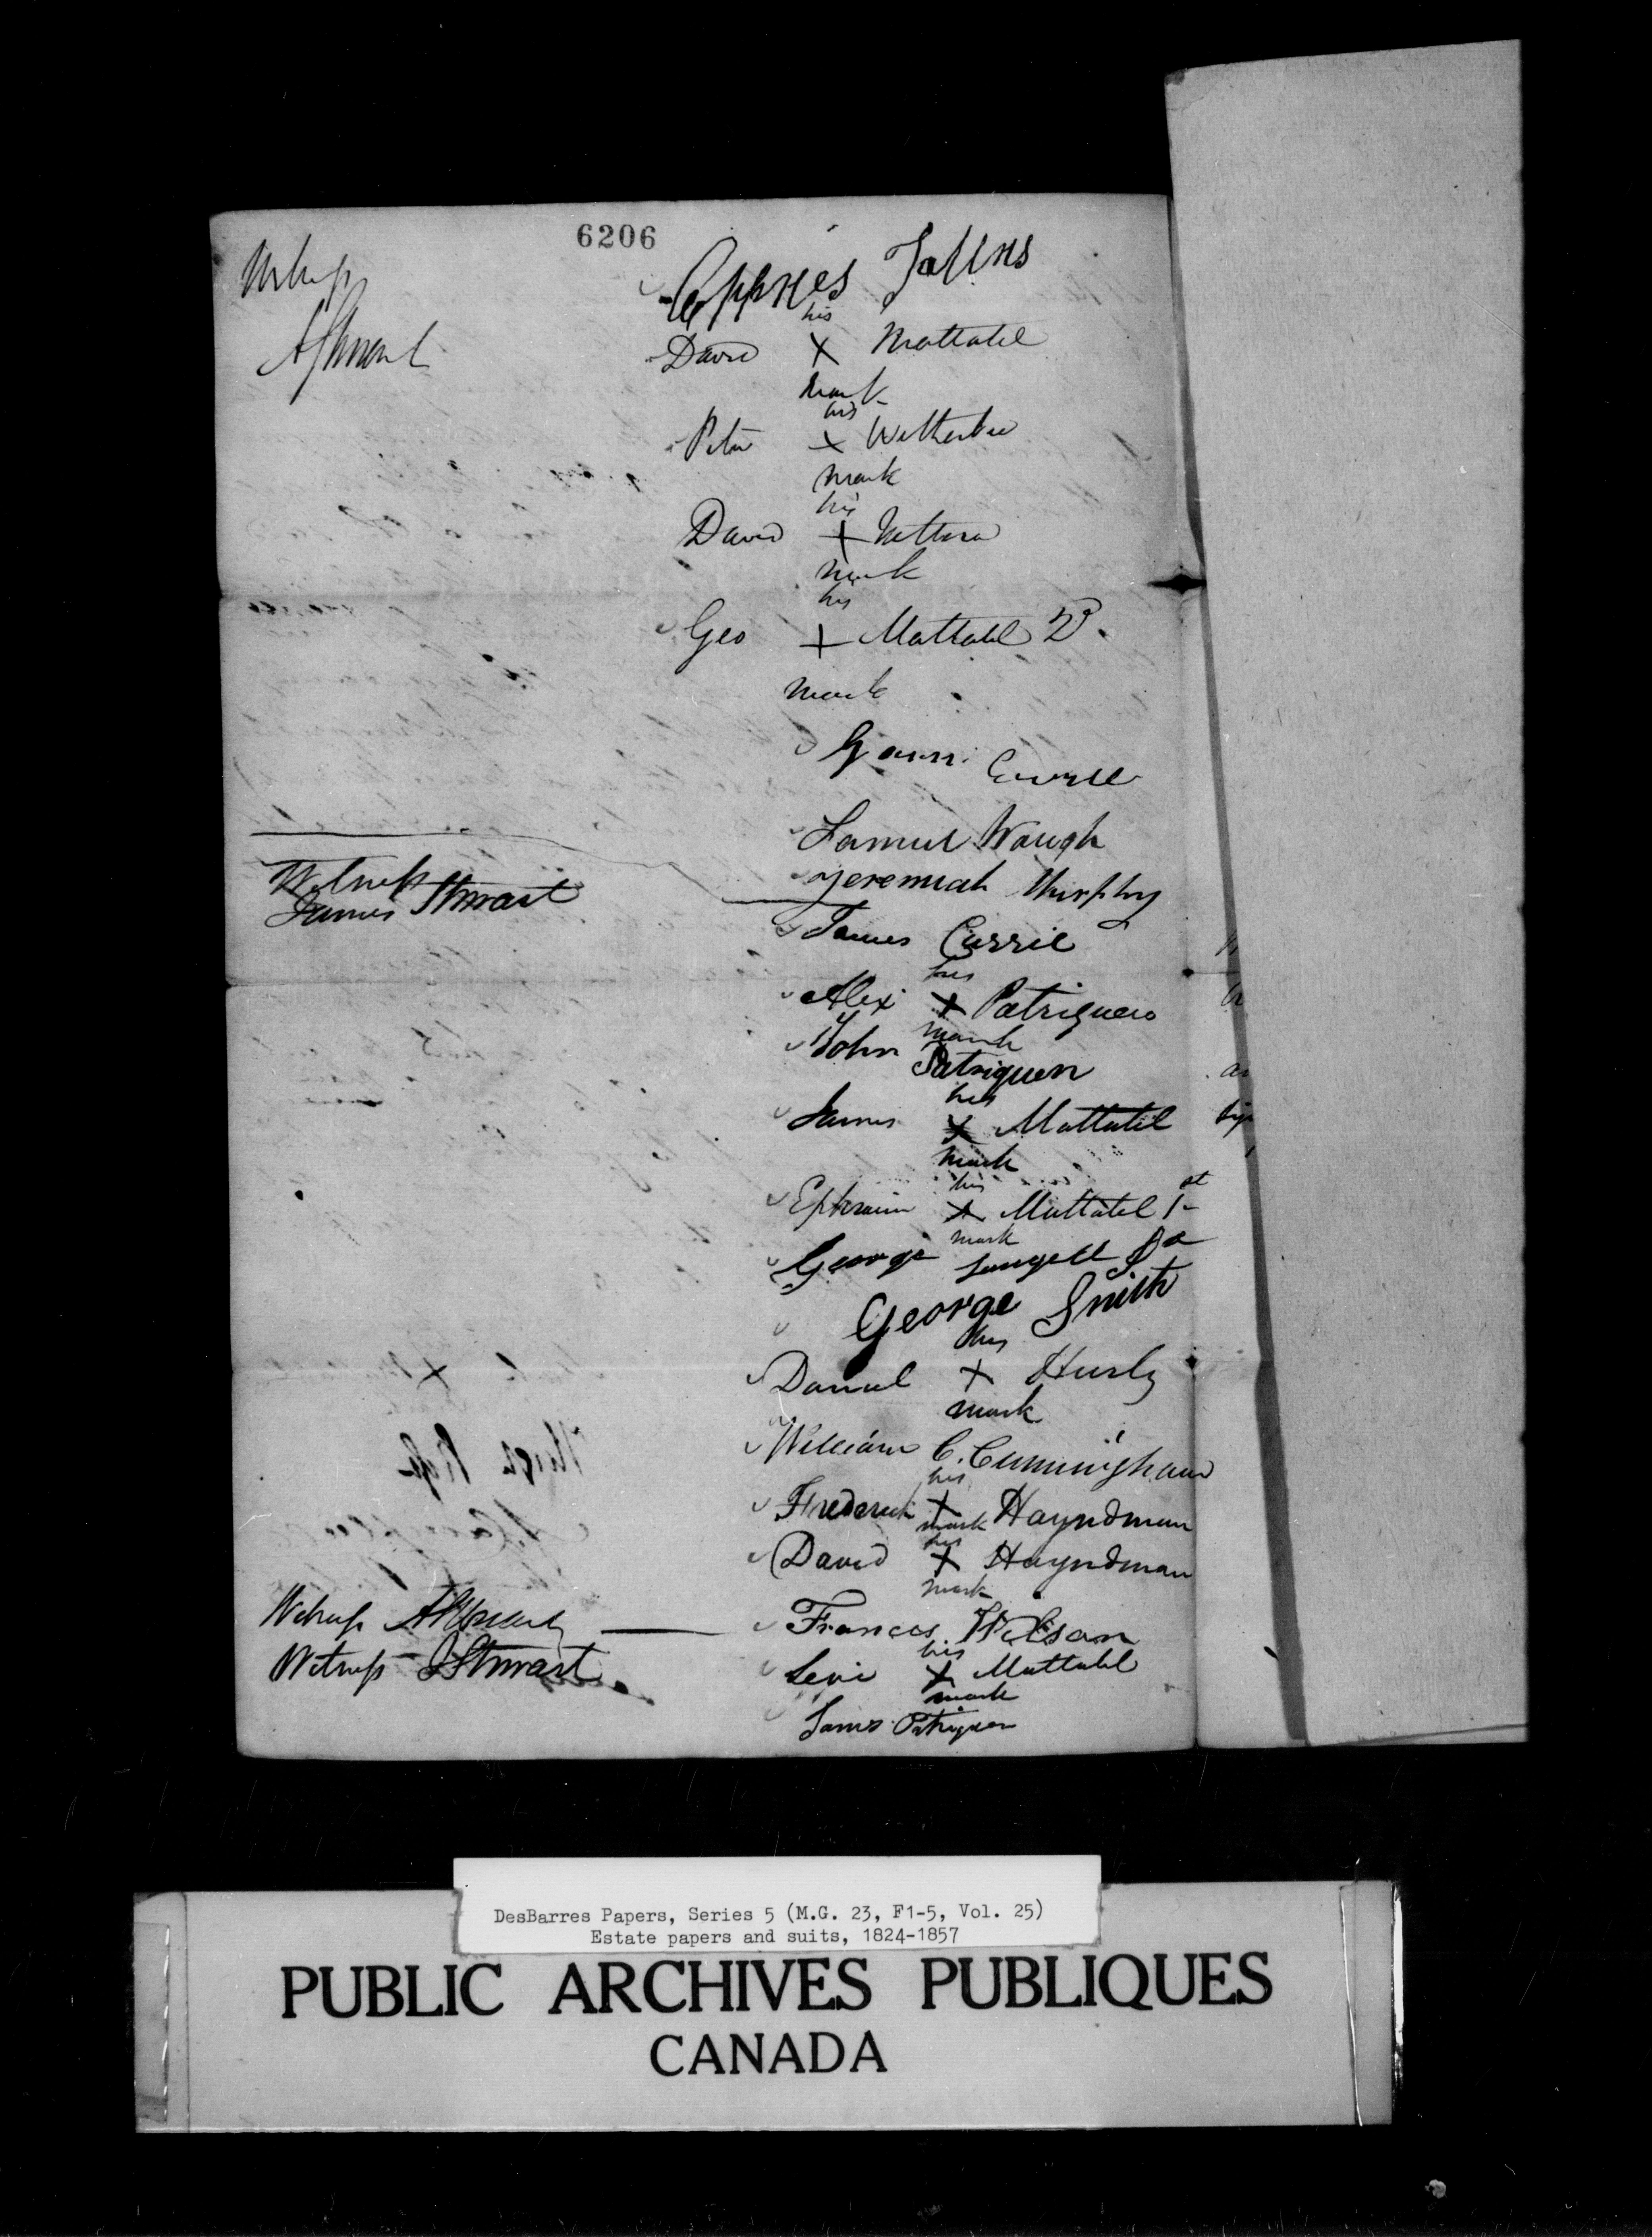 6206
Witness
A Stewart
his
David X Mattatel
mark
his
Peter X Wetherbee
mark
his
David X
mark
his
Geo X Mattatel 2d
mark
Samuel Waugh
Jeremiah Murphy
Witness
James Stewart
James Currie
his
Alex X Patriquen
mark
John Patriquen
his
James X Mattatel
mark
his
Ephraim X Mattatel 1st
mark
George Langell
George Smith
his
Daniel X Hurly
mark
William C. Cunningham
his
Frederick X Hayndman
mark
his
David X Hayndman
mark
Witness A Stewart
Frances Wilson
Witness J Stewart
his
Levi X Mattatel
mark
James Patriquen
DesBarres Papers, Series 5 (M.G. 23, F1-5, Vol. 25)
Estate papers and suits, 1824-1857
PUBLIC ARCHIVES PUBLIQUES
CANADA